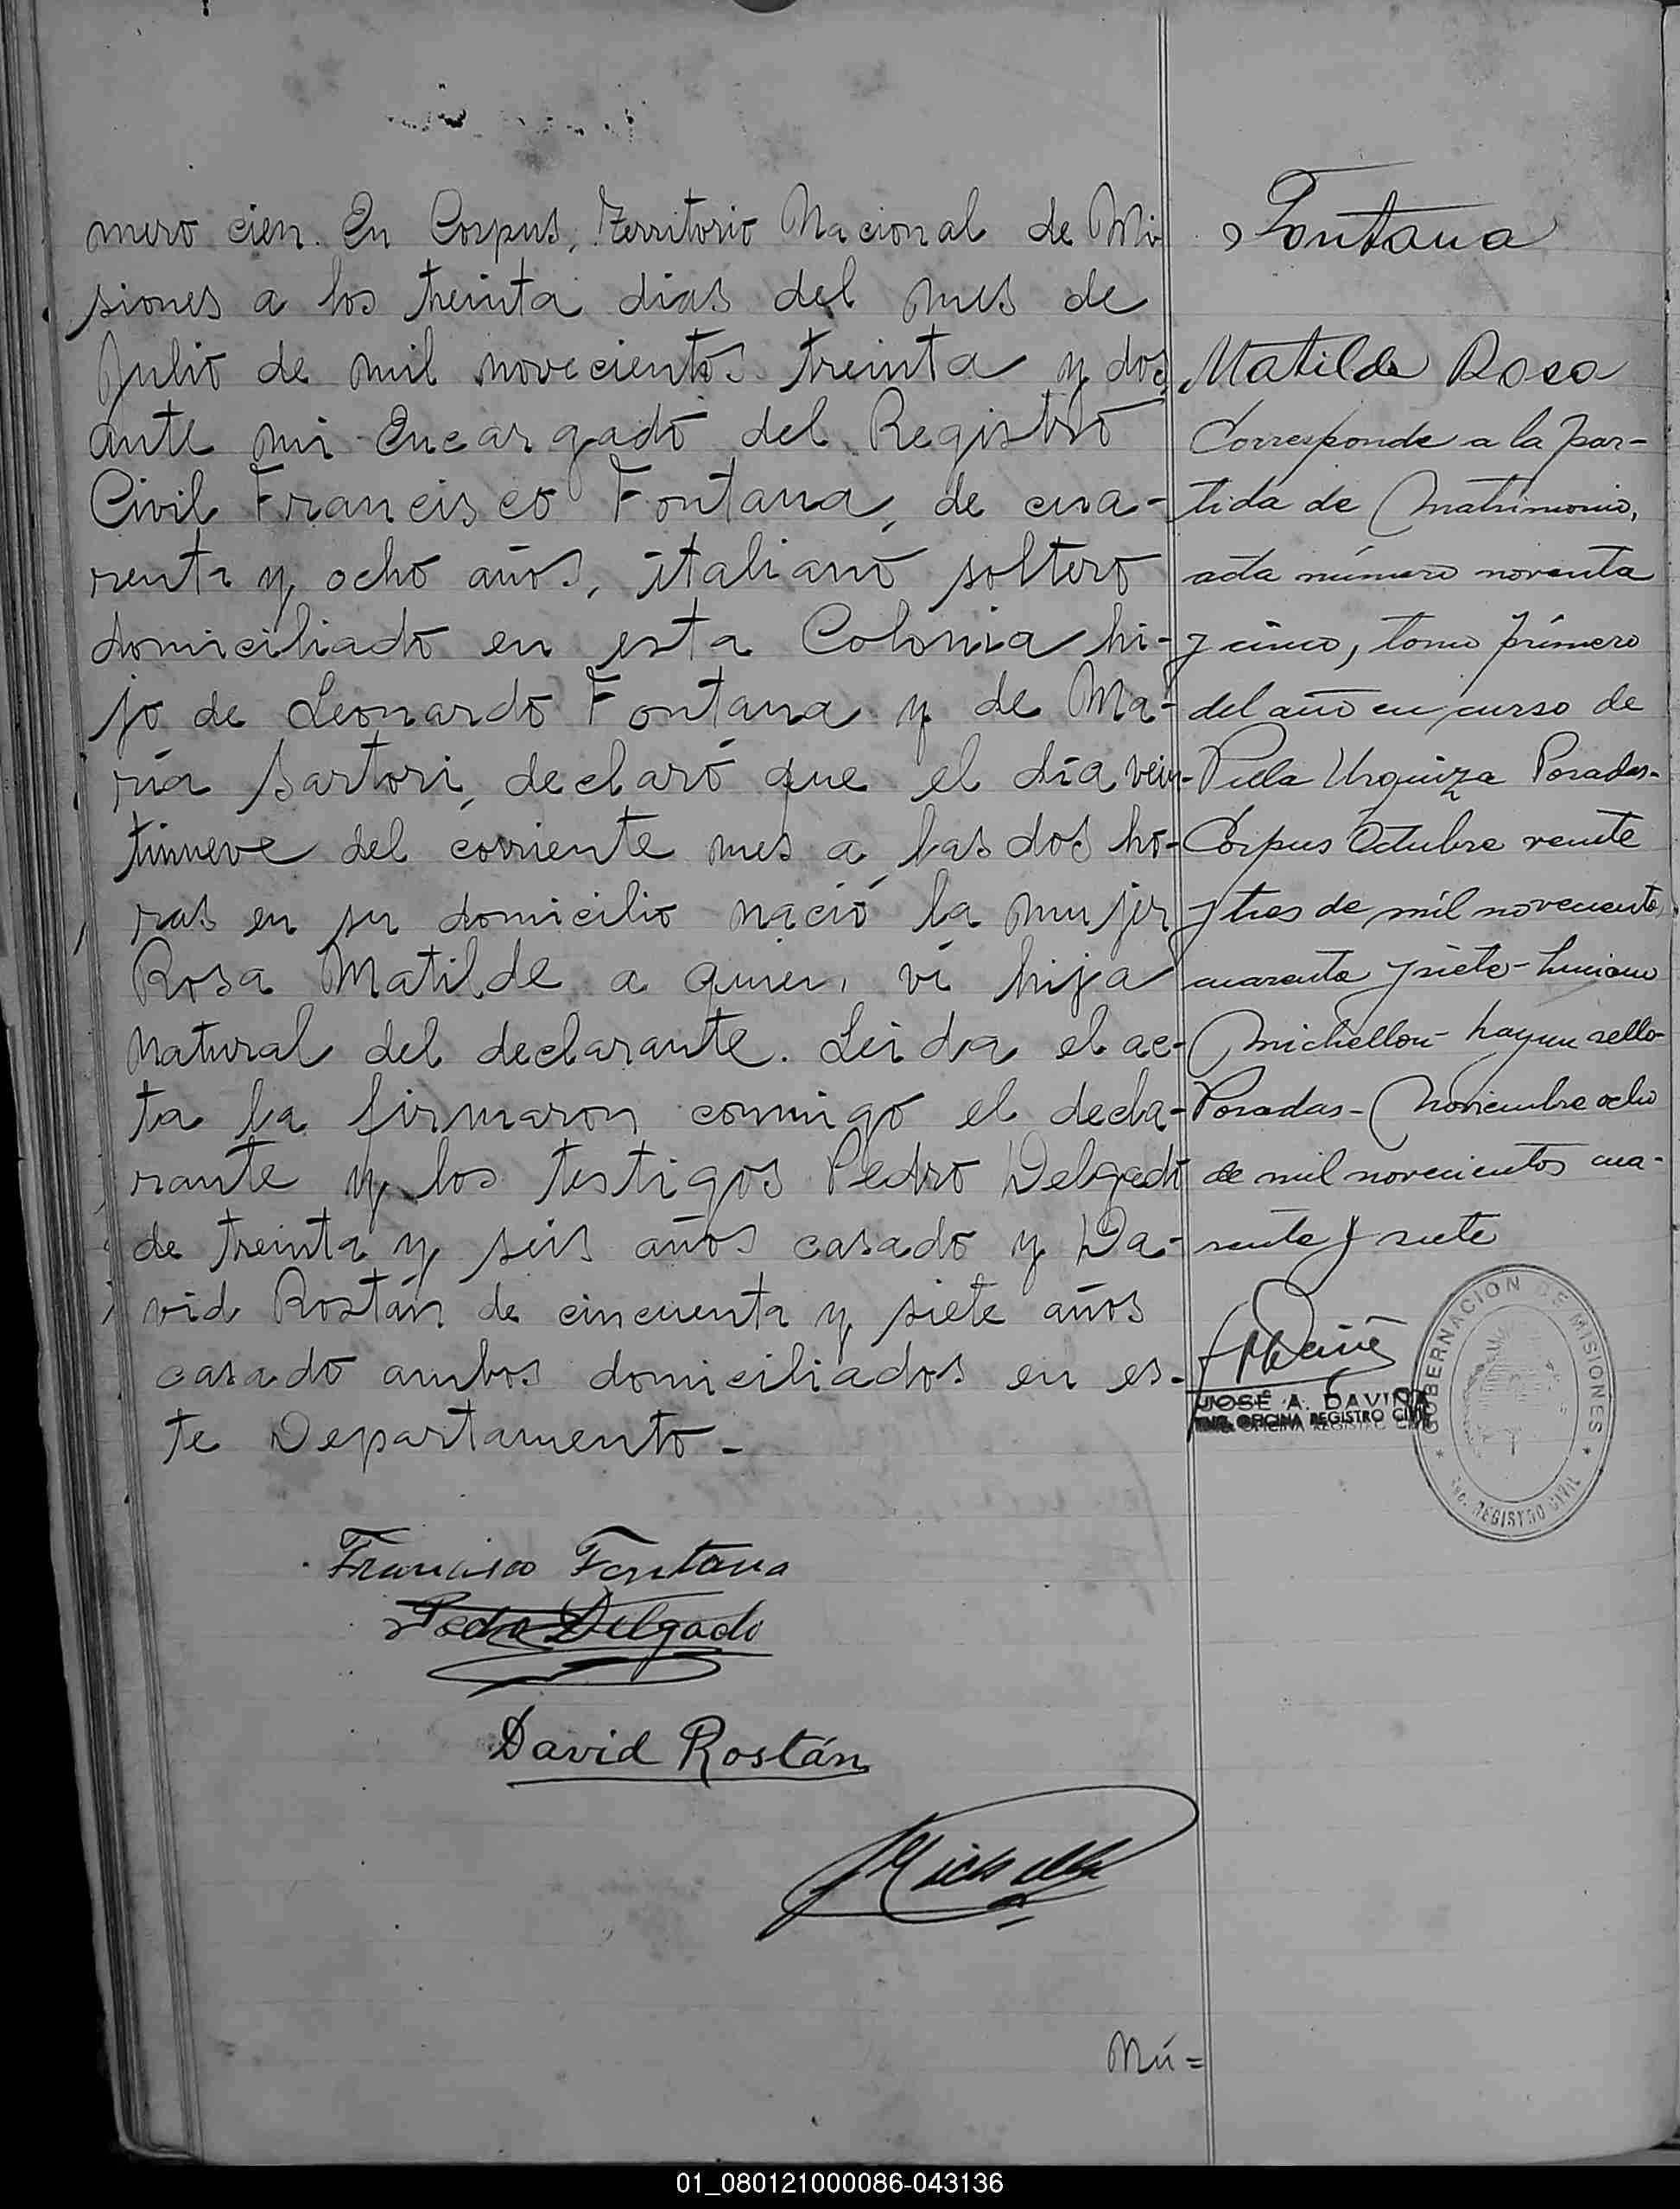 mero cien. En Corpus, Territorio Nacional de Mi
siones a los treinta dias del mes de
Julio de mil novecientos treinta y dos,
ante mi Encargado del Registro
Civil Francisco Fontana, de cua-
renta y ocho años, italiano soltero
domiciliado en esta Colonia hi-
jo de Leonardo Fontana y de Ma-
ría Sartori, declaró que el día vein-
tinueve del corriente mes a las dos ho-
ras en su domicilio nació la mujer
Rosa Matilde a quien, vi hija
natural del declarante. Leida el ac-
ta la firmaron conmigo el decla-
rante y los testigos Pedro Delgado
de treinta y seis años casado y Da-
vid Rostán de cincuenta y siete años
casado ambos domiciliados en es-
te Departamento.-
Francisco Fontana
Pedro Delgado
David Rostán
Nú=
Fontana
Matilde Rosa
Corresponde a la par-
tida de Matrimonio,
acta número noventa
y cinco, tomo primero
del año en curso de
Urquiza Posadas-
Corpus Octubre veinte
y tres de mil novecientos
cuarenta y siete- Luciano
Michellon- hay un sello-
Posadas- Noviembre ocho
de mil novecientos cua-
renta y siete
JOSÉ A. DAVIÑA
ENC. OFICINA REGISTRO CIVIL
GOBERNACION DE MISIONES
REGISTRO CIVIL
01_080121000086-043136